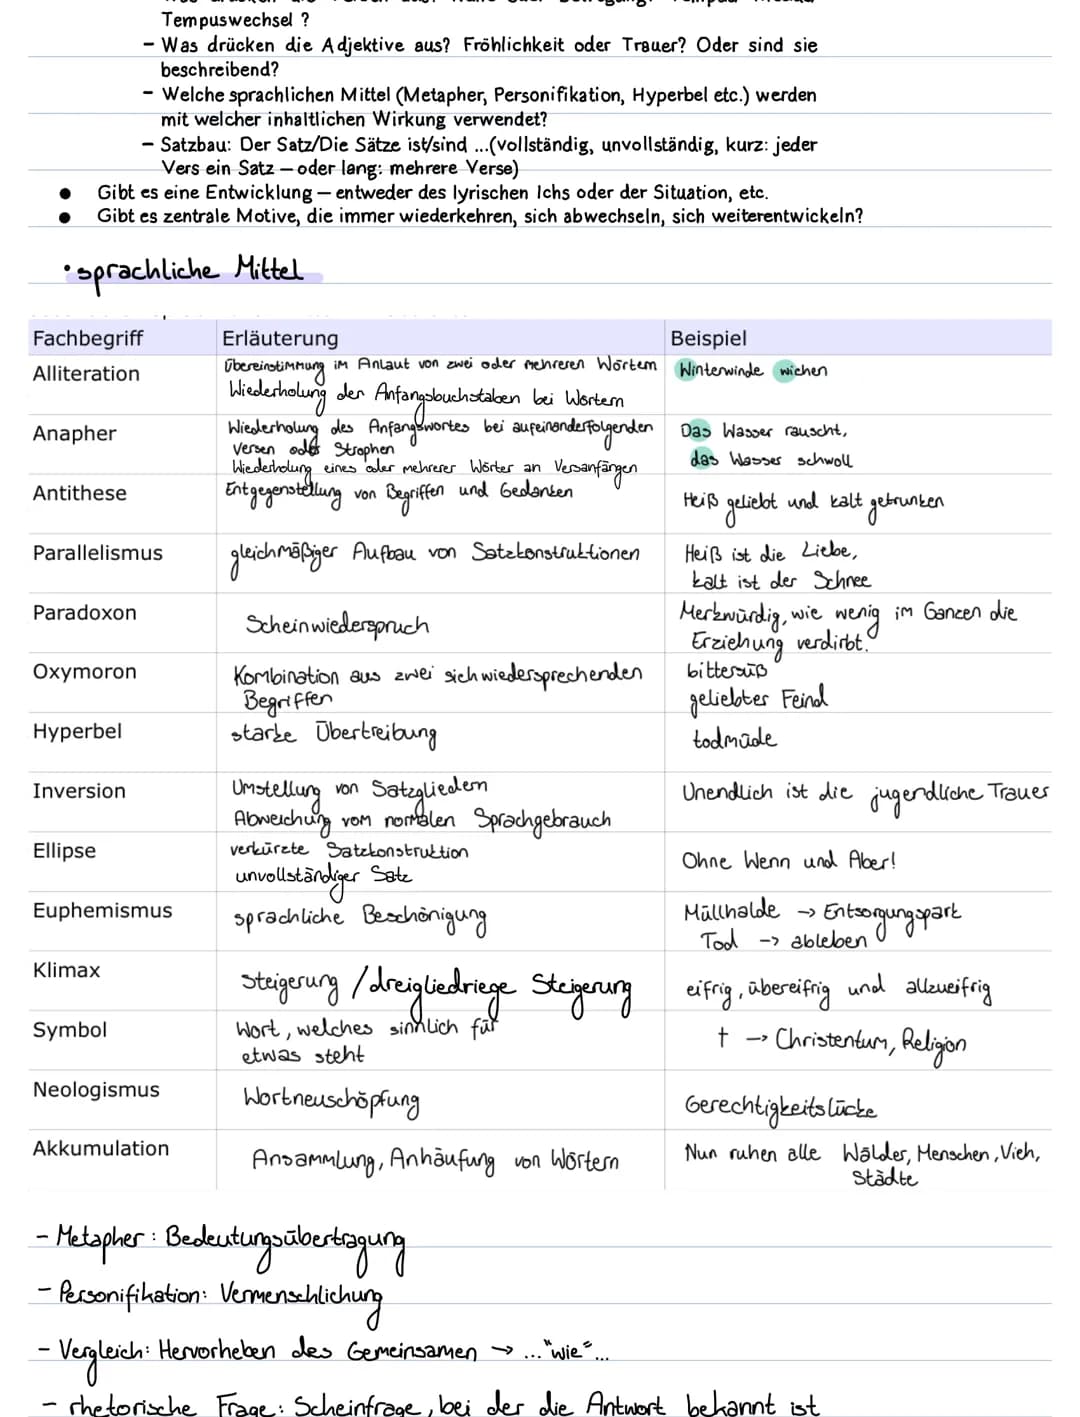 Tempuswechsel ?
– Was drücken die Adjektive aus? Fröhlichkeit oder Trauer? Oder sind sie
beschreibend?
– Welche sprachlichen Mittel (Metapher, Personifikation, Hyperbel etc.) werden
mit welcher inhaltlichen Wirkung verwendet?
– Satzbau: Der Satz/Die Sätze ist/sind ...(vollständig, unvollständig, kurz: jeder
Vers ein Satz – oder lang: mehrere Verse)
● Gibt es eine Entwicklung – entweder des lyrischen Ichs oder der Situation, etc.
● Gibt es zentrale Motive, die immer wiederkehren, sich abwechseln, sich weiterentwickeln?
• sprachliche Mittel
Fachbegriff Erläuterung Beispiel
Alliteration
Übereinstimmung im Anlaut von zwei oder mehreren Wörtern
Wiederholung der Anfangsbuchstaben bei Wörtern
Winterwinde wichen
Anapher
Wiederholung des Anfangswortes bei aufeinanderfolgenden
Versen oder Strophen
Wiederholung eines oder mehrerer Wörter an Versanfängen
Das Wasser rauscht,
das Wasser schwoll
Antithese
Entgegenstellung von Begriffen und Gedanken
Heiß geliebt und kalt getrunken
Parallelismus
gleichmäßiger Aufbau von Satzkonstruktionen
Heiß ist die Liebe,
kalt ist der Schnee
Paradoxon
Scheinwiederspruch
Merkwürdig, wie wenig im Ganzen die
Erziehung verdirbt.
Oxymoron
Kombination aus zwei sich wiedersprechenden
Begriffen
bittersüß
geliebter Feind
Hyperbel
starke Übertreibung
todmüde
Inversion
Umstellung von Satzgliedern
Abweichung vom normalen Sprachgebrauch
Unendlich ist die jugendliche Trauer
Ellipse
verkürzte Satzkonstruktion
unvollständiger Satz
Ohne Wenn und Aber!
Euphemismus
sprachliche Beschönigung
Müllhalde → Entsorgungspark
Tod → ableben
Klimax
Steigerung / dreigliedriege Steigerung
eifrig, übereifrig und allzueifrig
Symbol
Wort, welches sinnlich für
etwas steht
† → Christentum, Religion
Neologismus
Wortneuschöpfung
Gerechtigkeitslücke
Akkumulation
Ansammlung, Anhäufung von Wörtern
Nun ruhen alle Wälder, Menschen, Vieh,
Städte
– Metapher: Bedeutungsübertragung
– Personifikation: Vermenschlichung
– Vergleich: Hervorheben des Gemeinsamen → ..."wie"...
– rhetorische Frage: Scheinfrage, bei der die Antwort bekannt ist